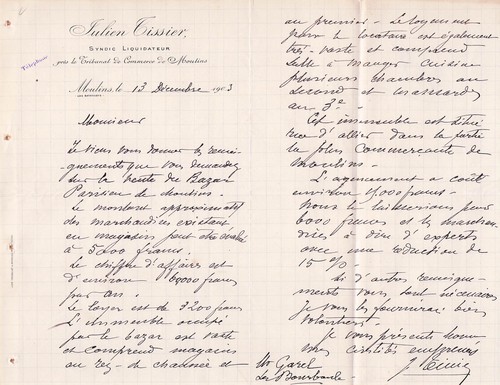 Julien Tissier,
SYNDIC LIQUIDATEUR
près le Tribunal de Commerce de Moulins
Téléphone
Moulins, le 13 Décembre 1903
Monsieur
Je viens vous donner les rensei-
gnements que vous demandez
sur la vente du Bazar
Parisien de Moulins.
Le montant approximatif
des marchandises existant
en magasins peut être évalué
à 5000 francs.
Le chiffre d'affaires est
d'environ 60000 francs
par an.
Le loyer est de 3200 francs
L'immeuble occupé
par le bazar est vaste
et comprend magasins
au rez-de chaussée et
au premier. Le logement
pour le locataire est également
très vaste et comprend
salle à manger cuisine
plusieurs chambres au
second et mansardes
au 3e.
Cet immeuble est situé
rue d'allier dans la partie
la plus commerçante de
moulins.
L'agencement a coûté
environ 11,000 francs.
Nous le laisserions pour
6000 francs et les marchan-
dises à dire d'experts
avec une réduction de
15 %.
Si d'autres renseigne-
ments vous sont nécessaires
je vous les fournirai bien
volontiers.
Je vous présente Mon-
sieur mes civilités empressées
Mr Garel
La Bourboule